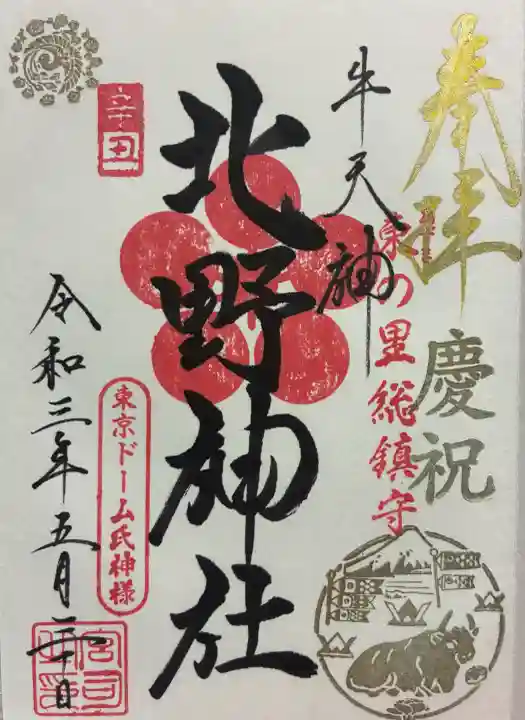 奉拝
慶祝
牛天神
東の里総鎮守
北野神社
辛丑
東京ドーム氏神様
令和三年五月二十日